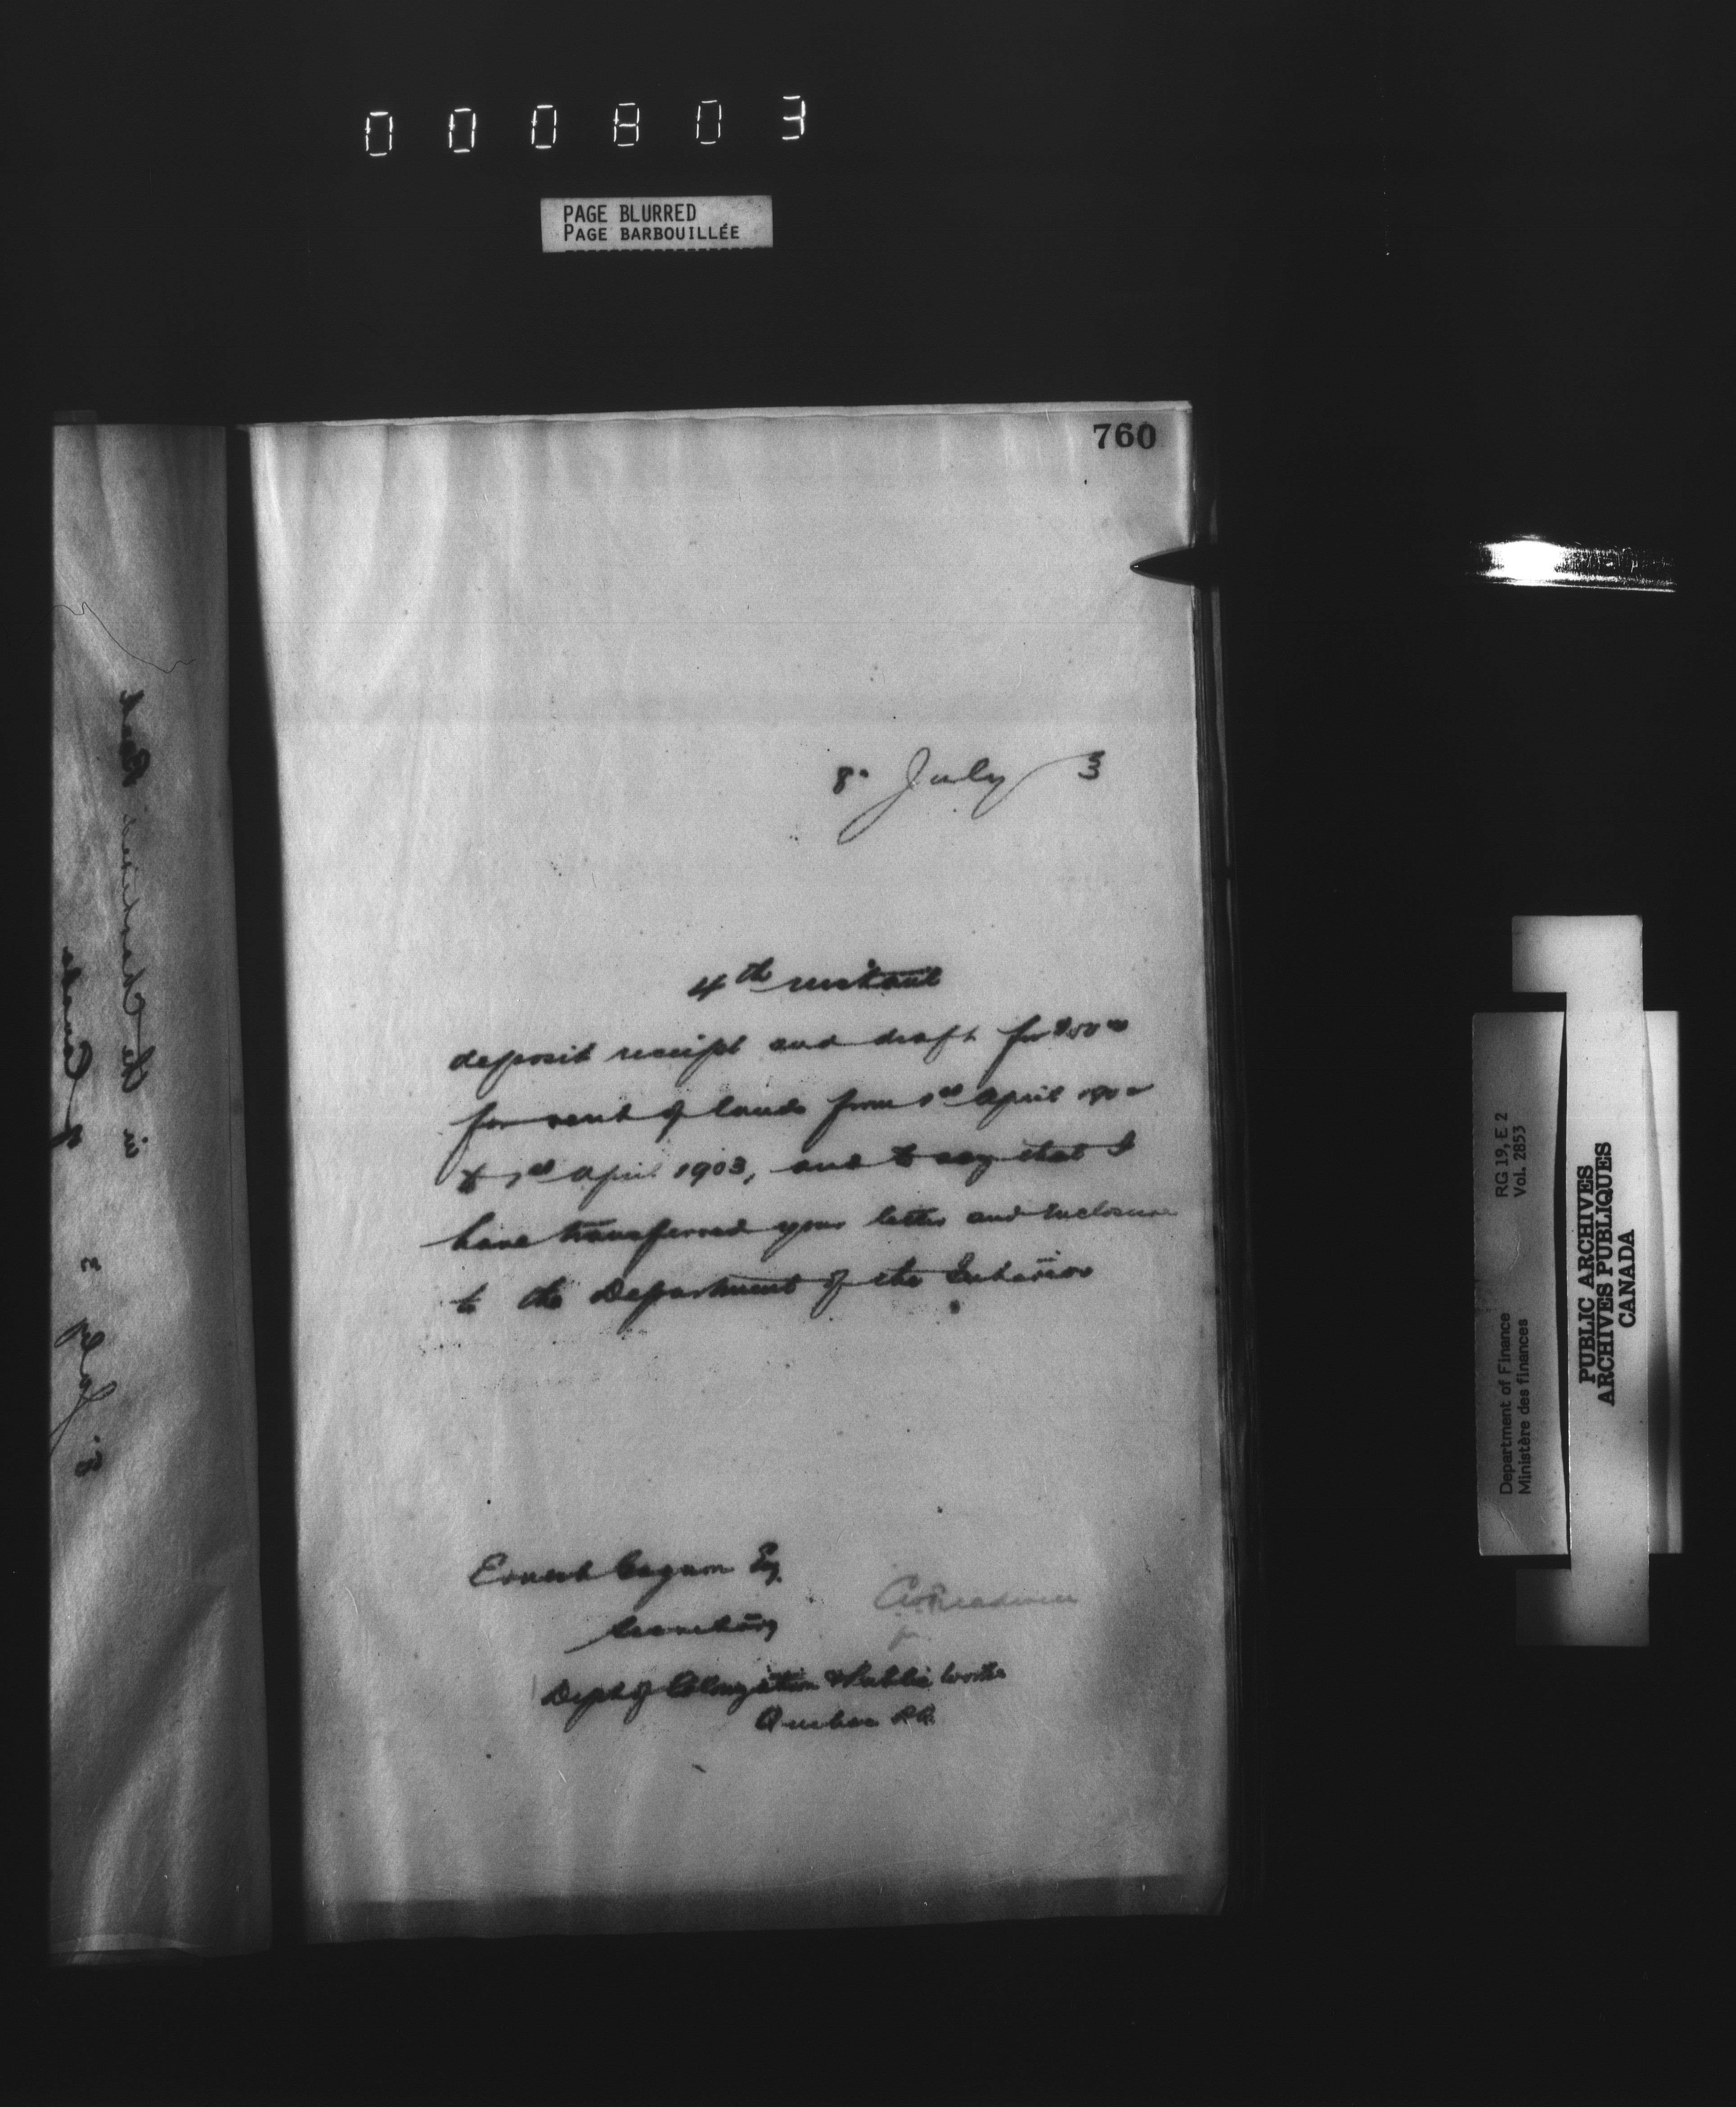 000803
PAGE BLURRED
PAGE BARBOUILLÉE
760
8" July 3
4th instant
deposit receipt and draft for $50.00
for rent of lands from 1st April 1902
to 1st April 1903, and to say that I
have transferred your letter and enclosure
to the Department of the Interior
Ernest Esq.
Secretary
Dept of Colonization & Public Works
Quebec P.Q.
Department of Finance RG 19, E 2
Ministère des finances Vol. 2853
PUBLIC ARCHIVES
ARCHIVES PUBLIQUES
CANADA